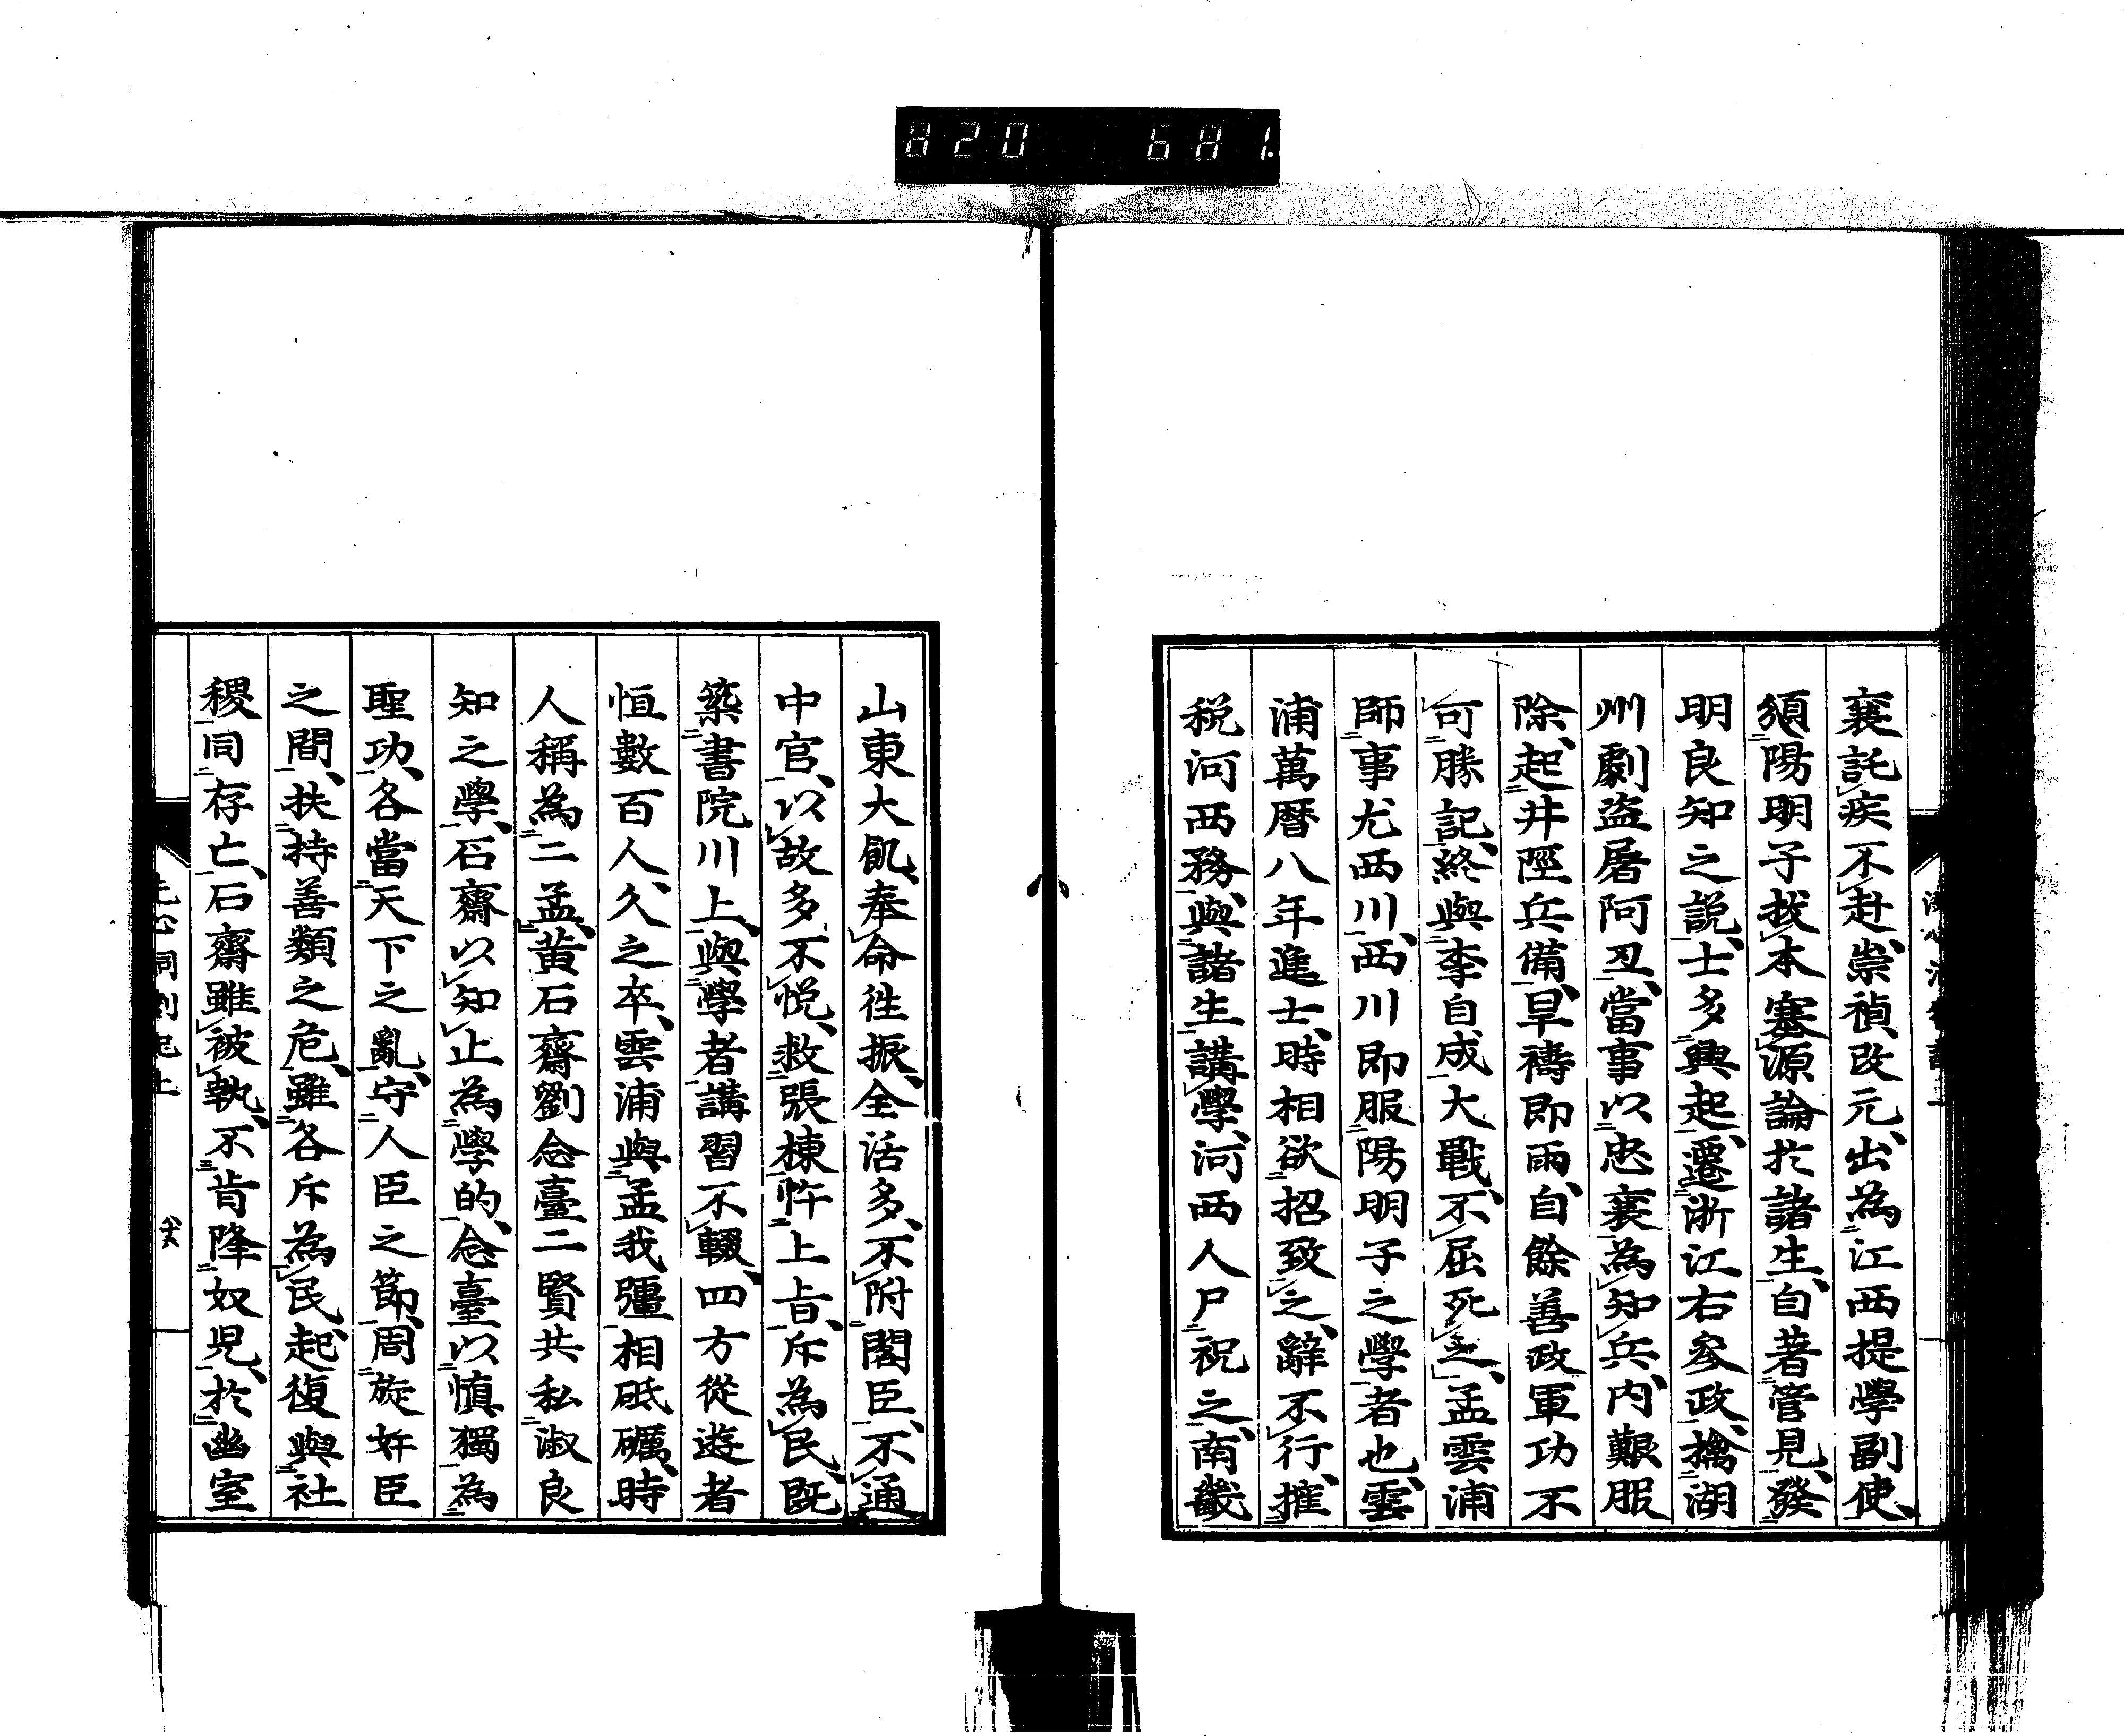 820 681.
襄託疾不赴、崇禎改元、出為江西提學副使、
頒陽明子拔本塞源論於諸生、自著管見、發
明良知之説、士多興起、遷浙江右參政、擒湖
州劇盗屠阿丑、當事以忠襄為知兵、内艱服
除、起井陘兵備、旱禱即雨、自餘善政軍功不
可勝記、終與李自成大戰、不屈死之、孟雲浦
師事尤西川、西川即服陽明子之學者也、雲
浦萬暦八年進士、時相欲招致之、辭不行、搉
税河西務、與諸生講學、河西人尸祝之、南畿
山東大飢、奉命往振、全活多、不附閣臣、不通
中官、以故多不悦、救張棟忤上旨、斥為民、既
築書院川上、與學者講習不輟、四方從遊者
恒數百人、久之卒、雲浦與孟我疆相砥礪、時
人稱為二孟、黄石齋劉念臺二賢共私淑良
知之學、石齋以知止為學的、念臺以慎獨為
聖功、各當天下之亂、守人臣之節、周旋奸臣
之間、扶持善類之危、雖各斥為民、起復與社
稷同存亡、石齋雖被執、不肯降奴児、於幽室